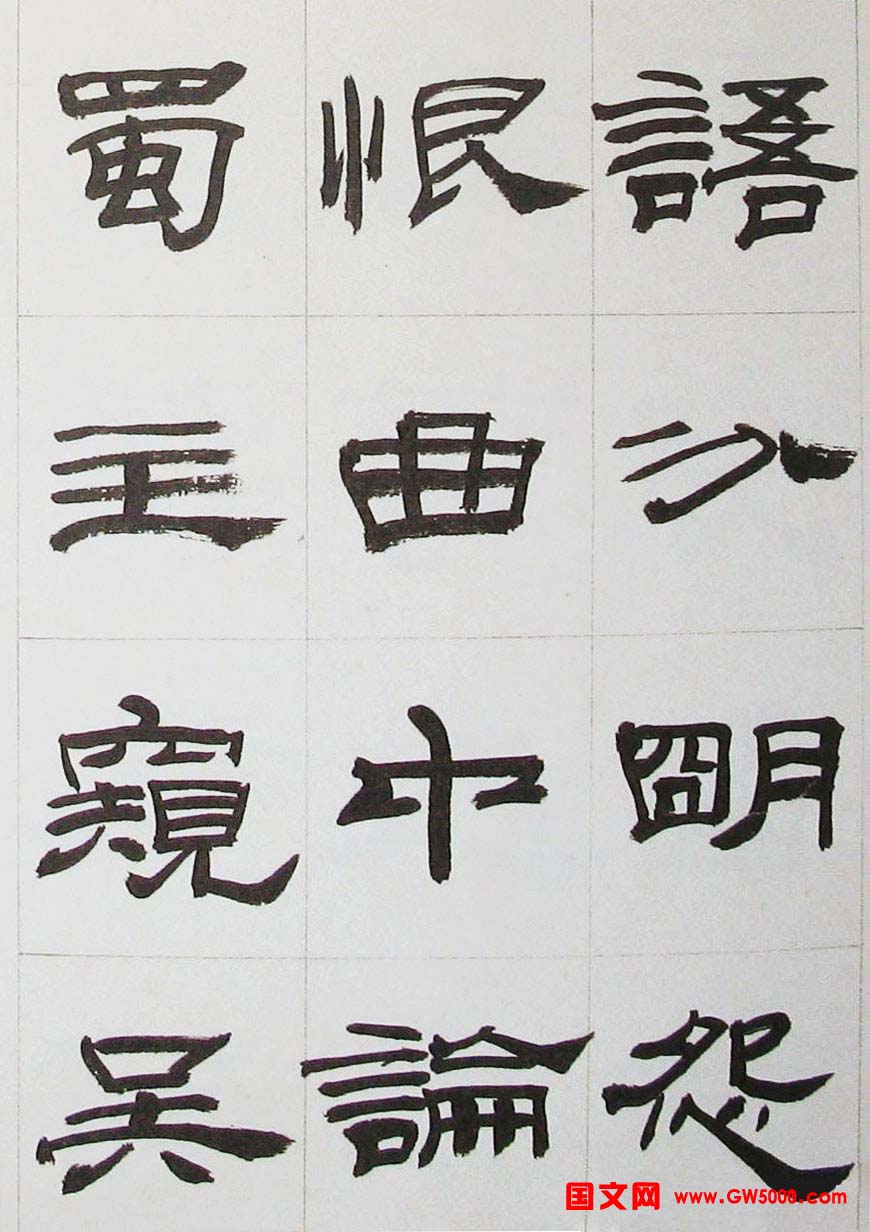 語分明怨
恨曲中論
蜀主窺吳
国文网 www.GW5000.com